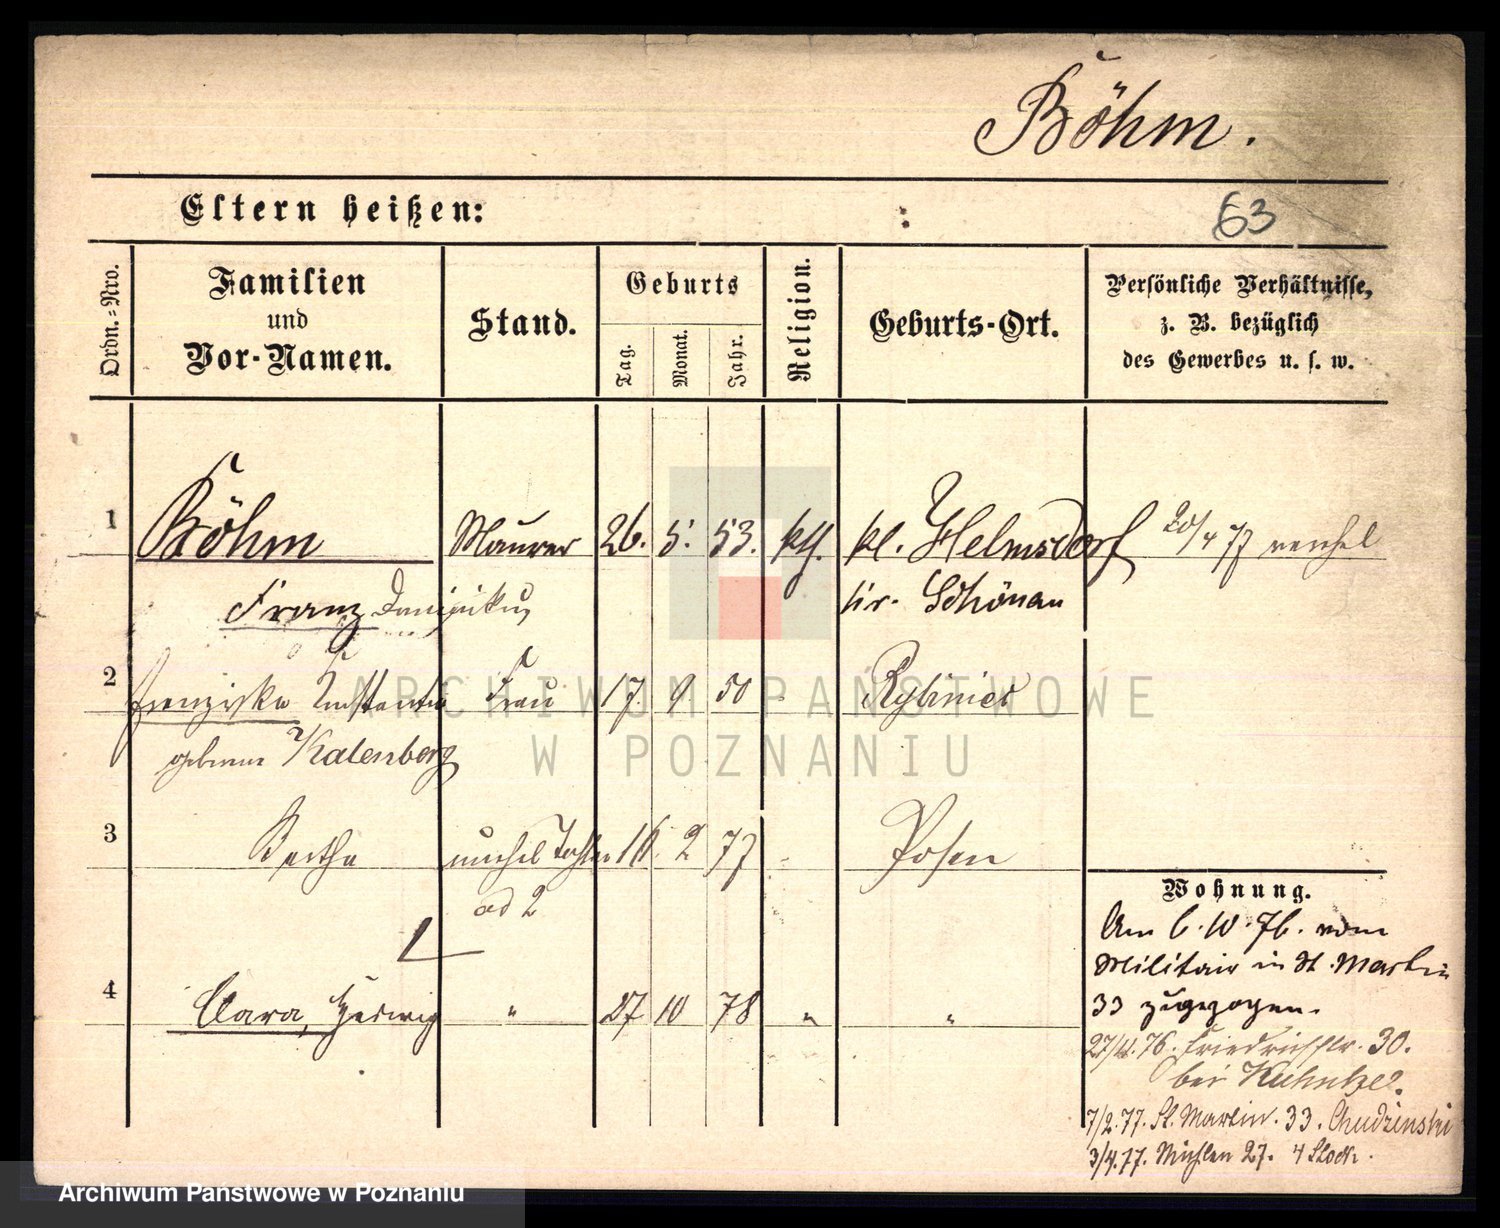 Böhm.
Eltern heißen:
63
Ordn.-Nro.
Familien
und
Vor-Namen.
Stand.
Geburts
Tag.
Monat.
Jahr.
Religion.
Geburts-Ort.
Persönliche Verhältnisse,
z. B. bezüglich
des Gewerbes u. s. w.
1 Böhm Maurer 26. 5. 53. kth. kl. Helmsdorf 20/4 77
Franz Kr. Schönau
2 Franziska Frau 17. 9 50
geborene Kalenberg
3 Bertha 16. 2 77 Posen
ad 2
4 Clara, Hedwig " 27 10 78 " "
Wohnung.
Am 6. 10. 76. vom
Militair in St. Martin
33 zugezogen.
76. Friedrichstr. 30.
bei
7/2. 77. St. Martin. 33. Chudzinski
3/4. 77. Mühlen 27. 4 Stock.
ARCHIWUM PAŃSTWOWE
W POZNANIU
Archiwum Państwowe w Poznaniu